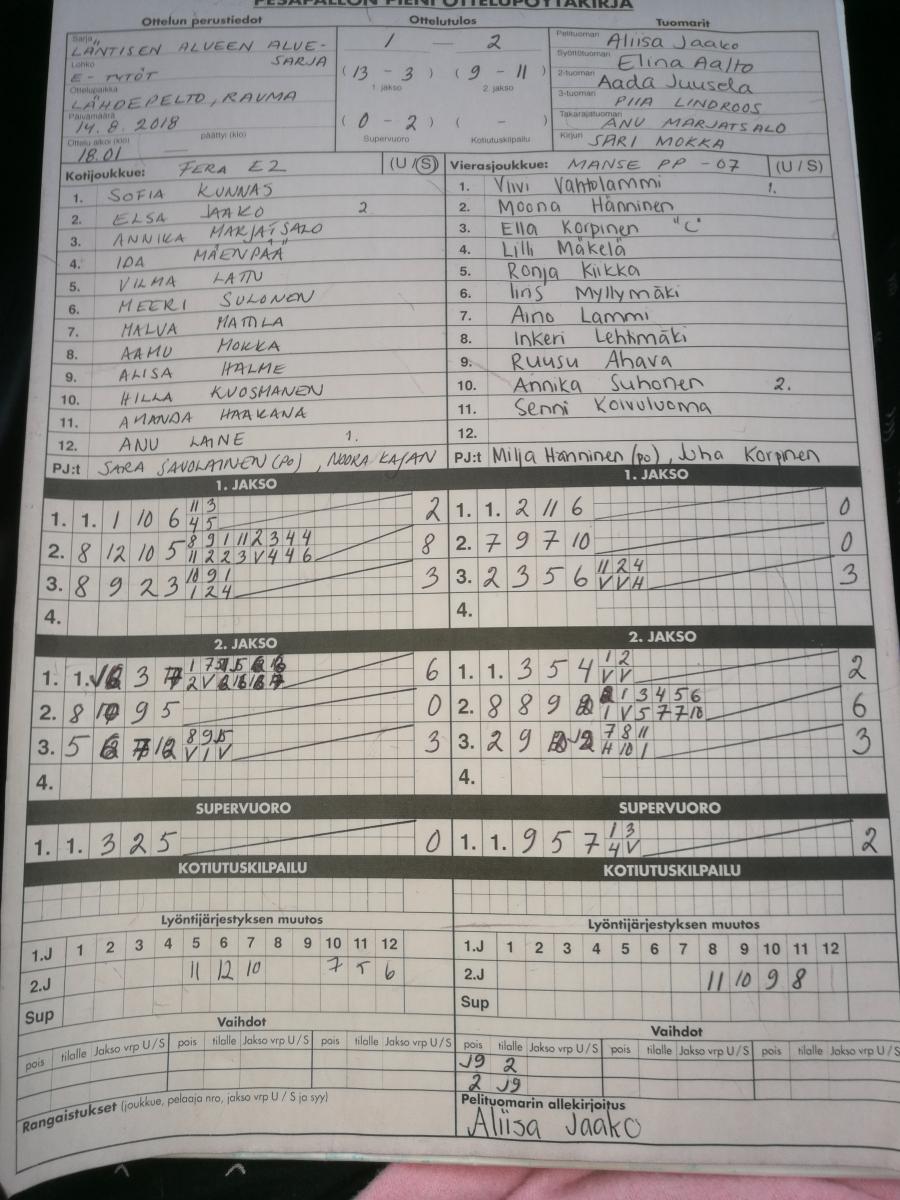 PESÄPALLON PIENI OTTELUPÖYTÄKIRJA
Ottelun perustiedot Ottelutulos Tuomarit
Sarja LÄNTISEN ALUEEN ALUE-
SARJA
Lohko E-TYTÖT
Ottelupaikka LÄHDEPELTO, RAUMA
Päivämäärä 14.8.2018
Ottelu alkoi (klo) 18.01 päättyi (klo) —
1 — 2
(13 - 3) (9 - 11)
1. jakso 2. jakso
(0 - 2) ( - )
Supervuoro Kotiutuskilpailu
Pelituomari Aliisa Jaako
Syöttötuomari Elina Aalto
2-tuomari Aada Juusela
3-tuomari PIIA LINDROOS
Takarajatuomari ANU MARJATSALO
Kirjuri SARI MOKKA
Kotijoukkue: FERA E2 (U/S)
1. SOFIA KUNNAS
2. ELSA JAAKO 2
3. ANNIKA MARJATSALO
4. IDA MÄENPÄÄ
5. VILMA LATTU
6. MEERI SULONEN
7. MALVA MATTILA
8. AAMU MOKKA
9. ALISA HALME
10. HILLA KUOSMANEN
11. AMANDA HAAKANA
12. ANU LAINE 1.
PJ:t SARA SAVOLAINEN (PO), NOORA KAJAN
Vierasjoukkue: MANSE PP -07 (U/S)
1. Viivi Vahtolammi 1.
2. Moona Hänninen
3. Ella Korpinen "C"
4. Lilli Mäkelä
5. Ronja Kiikka
6. Iiris Myllymäki
7. Aino Lammi
8. Inkeri Lehtimäki
9. Ruusu Ahava
10. Annika Suhonen 2.
11. Senni Koivuluoma
12.
PJ:t Milja Hänninen (po), Juha Korpinen
1. JAKSO
1. 1. 1 10 6 11 3 2
4 5
2. 8 12 10 5 8 9 1 11 2 3 4 4 8
11 2 2 3 V 4 4 6
3. 8 9 2 3 10 9 1 3
1 2 4
4.
1. JAKSO
1. 1. 2 11 6 0
2. 7 9 7 10 0
3. 2 3 5 6 11 2 4 3
V V H
4.
2. JAKSO
1. 1. 3 6
2. 8 9 5 0
3. 5 8 9 3
V 1 V
4.
2. JAKSO
1. 1. 3 5 4 1 2 2
V V
2. 8 8 9 1 3 4 5 6 6
1 V 5 7 7 10
3. 2 9 J9 7 8 11 3
H 10 1
4.
SUPERVUORO
1. 1. 3 2 5 0
SUPERVUORO
1. 1. 9 5 7 1 3 2
4 V
KOTIUTUSKILPAILU
KOTIUTUSKILPAILU
Lyöntijärjestyksen muutos
1.J 1 2 3 4 5 6 7 8 9 10 11 12
2.J 11 12 10 7 5 6
Sup
Lyöntijärjestyksen muutos
1.J 1 2 3 4 5 6 7 8 9 10 11 12
2.J 11 10 9 8
Sup
Vaihdot
pois tilalle Jakso vrp U/S pois tilalle Jakso vrp U/S pois tilalle Jakso vrp U/S
Vaihdot
pois tilalle Jakso vrp U/S pois tilalle Jakso vrp U/S pois tilalle Jakso vrp U/S
J9 2
2 J9
Rangaistukset (joukkue, pelaaja nro, jakso vrp U / S ja syy)
Pelituomarin allekirjoitus
Aliisa Jaako